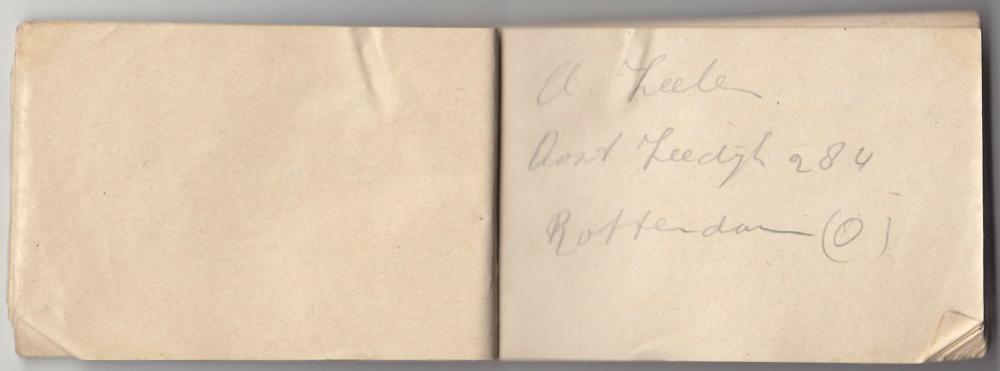 A. Zeele
Oost Zeedijk 284
Rotterdam (O)